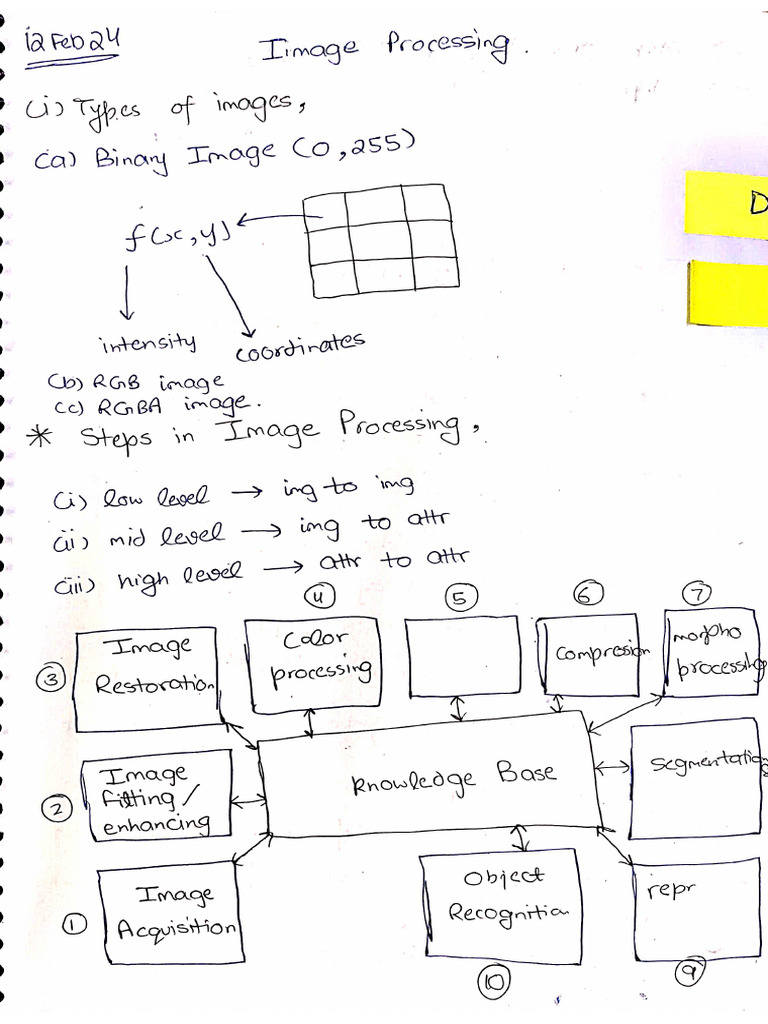 12 Feb 24
Iimage Processing.
(i) Types of images,
(a) Binary Image (0,255)
f(x,y)
intensity
coordinates
(b) RGB image
(c) RGBA image.
* Steps in Image Processing,
(i) low level → img to img
(ii) mid level → img to attr
(iii) high level → attr to attr
④ ⑤ ⑥ ⑦
③
Image
Restoration
Color
processing
Compresion
morpho
processing
②
Image
fitting/
enhancing
Knowledge Base
Segmentation
①
Image
Acquisition
Object
Recognition
repr
⑩
⑨
D